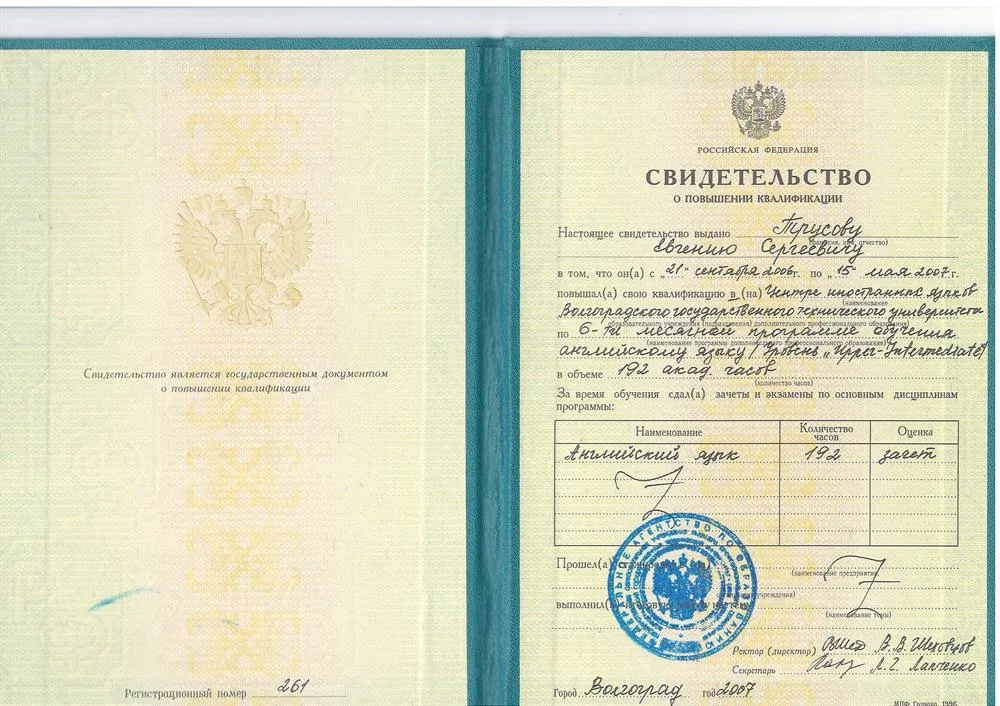 Свидетельство является государственным документом
о повышении квалификации
Регистрационный номер 261
РОССИЙСКАЯ ФЕДЕРАЦИЯ
СВИДЕТЕЛЬСТВО
О ПОВЫШЕНИИ КВАЛИФИКАЦИИ
Настоящее свидетельство выдано Трусову
(фамилия, имя, отчество)
Евгению Сергеевичу
в том, что он(а) с „21" сентября 2006г. по „15" мая 2007 г.
повышал(а) свою квалификацию в (на) Центре иностранных языков
(наименование
Волгоградского государственного технического университета
образовательного учреждения (подразделения) дополнительного профессионального образования)
по 6-ти месячной программе обучения
(наименование программы дополнительного профессионального образования)
английскому языку (Уровень „Upper-Intermediate")
в объеме 192 акад. часов
(количество часов)
За время обучения сдал(а) зачеты и экзамены по основным дисциплинам
программы:
Наименование Количество часов Оценка
Английский язык 192 зачет
Прошел(а)
(наименование предприятия,
учреждения)
выполнил(а)
(наименование темы)
ФЕДЕРАЛЬНОЕ АГЕНТСТВО ПО ОБРАЗОВАНИЮ
Ректор (директор) В.В. Шеховцов
Секретарь Л.Г. Лапченко
Город Волгоград год 2007
МПФ Гознака. 1996.